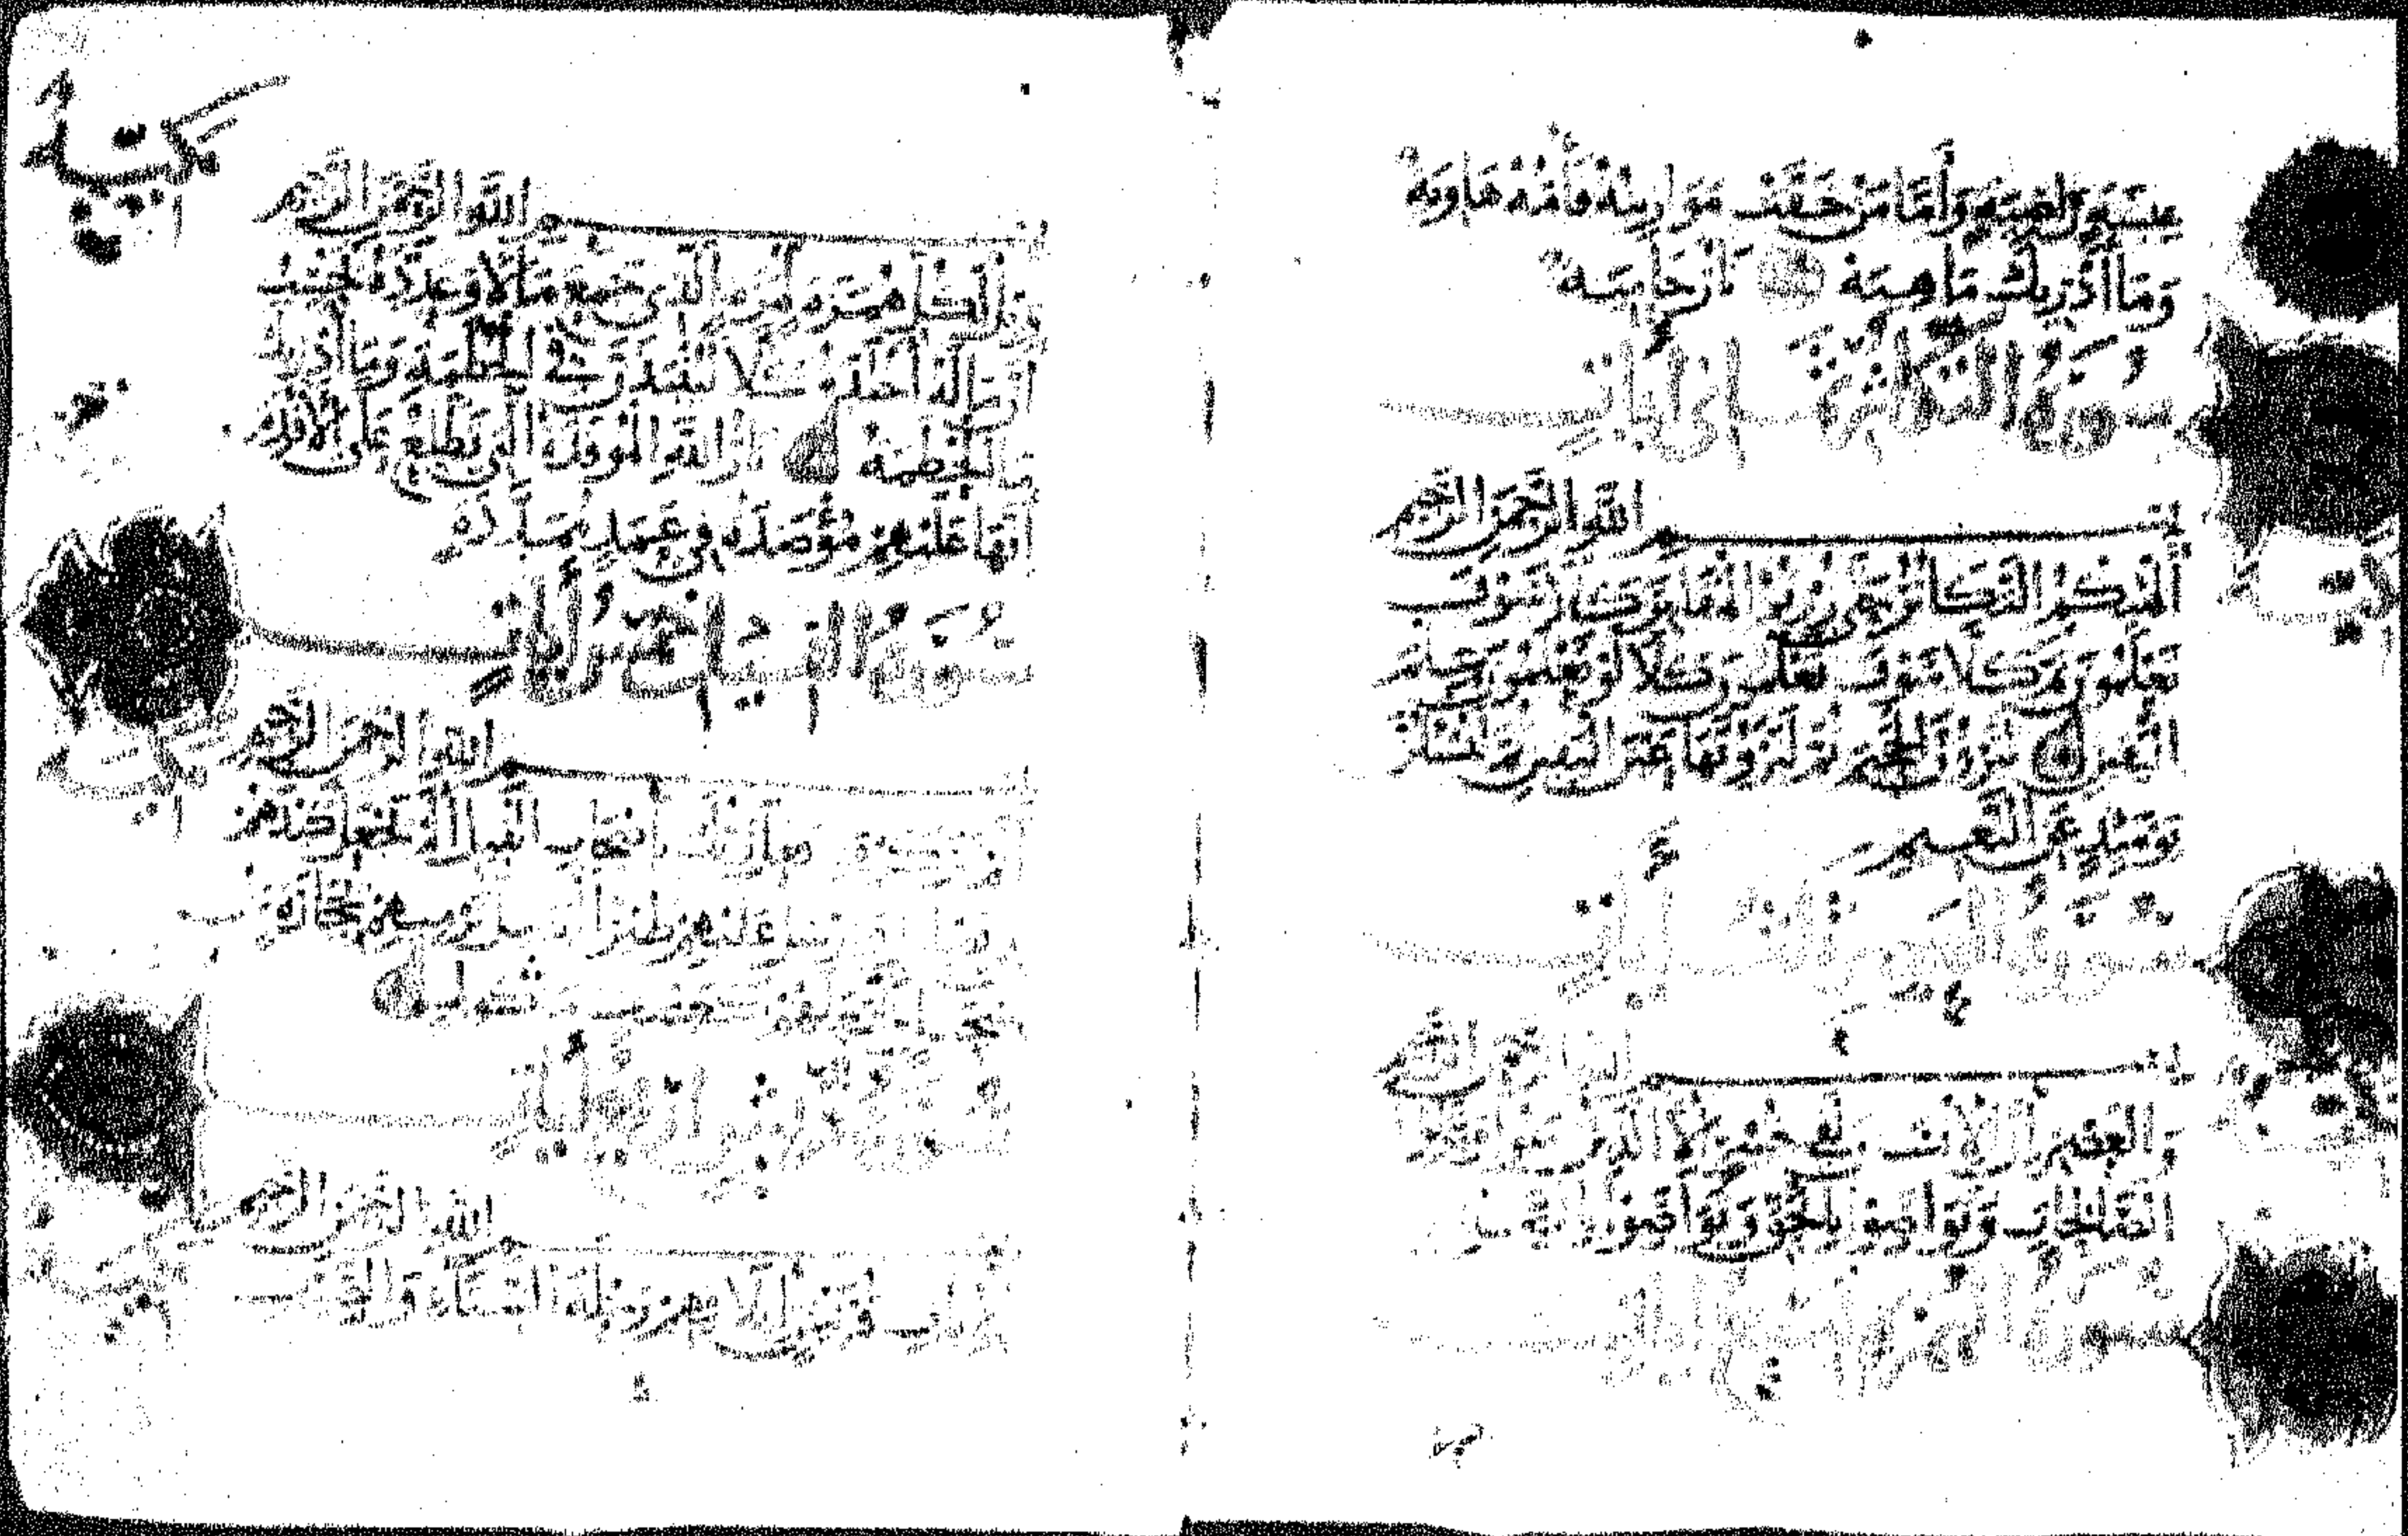 عِيشَةٍ رَاضِيَةٍ وَأَمَّا مَنْ خَفَّتْ مَوَازِينُهُ فَأُمُّهُ هَاوِيَةٌ
وَمَا أَدْرَيكَ مَا هِيَهْ نَارٌ حَامِيَةٌ
سورة التكاثر ثمانى آيات
بسم الله الرحمن الرحيم
أَلْهَيكُمُ التَّكَاثُرُ حَتَّى زُرْتُمُ الْمَقَابِرَ كَلَّا سَوْفَ
تَعْلَمُونَ ثُمَّ كَلَّا سَوْفَ تَعْلَمُونَ كَلَّا لَوْ تَعْلَمُونَ عِلْمَ
الْيَقِينِ لَتَرَوُنَّ الْجَحِيمَ ثُمَّ لَتَرَوُنَّهَا عَيْنَ الْيَقِينِ ثُمَّ لَتُسْئَلُنَّ
يَوْمَئِذٍ عَنِ النَّعِيمِ
سورة العصر ثلث آيات
بسم الله الرحمن الرحيم
وَالْعَصْرِ إِنَّ الْإِنْسَانَ لَفِي خُسْرٍ إِلَّا الَّذِينَ آمَنُوا وَعَمِلُوا
الصَّالِحَاتِ وَتَوَاصَوْا بِالْحَقِّ وَتَوَاصَوْا بِالصَّبْرِ
سورة الهمزة
مكية
بسم الله الرحمن الرحيم
وَيْلٌ لِكُلِّ هُمَزَةٍ لُمَزَةٍ الَّذِي جَمَعَ مَالًا وَعَدَّدَهُ يَحْسَبُ
أَنَّ مَالَهُ أَخْلَدَهُ كَلَّا لَيُنْبَذَنَّ فِي الْحُطَمَةِ وَمَا أَدْرَيكَ
مَا الْحُطَمَةُ نَارُ اللَّهِ الْمُوقَدَةُ الَّتِي تَطَّلِعُ عَلَى الْأَفْئِدَةِ
إِنَّهَا عَلَيْهِمْ مُؤْصَدَةٌ فِي عَمَدٍ مُمَدَّدَةٍ
سورة الفيل خمس آيات
بسم الله الرحمن الرحيم
أَلَمْ تَرَ كَيْفَ فَعَلَ رَبُّكَ بِأَصْحَابِ الْفِيلِ أَلَمْ يَجْعَلْ كَيْدَهُمْ
فِي تَضْلِيلٍ وَأَرْسَلَ عَلَيْهِمْ طَيْرًا أَبَابِيلَ تَرْمِيهِمْ بِحِجَارَةٍ
مِنْ سِجِّيلٍ فَجَعَلَهُمْ كَعَصْفٍ مَأْكُولٍ
سورة قريش آيات
بسم الله الرحمن الرحيم
لِإِيلَافِ قُرَيْشٍ إِيلَافِهِمْ رِحْلَةَ الشِّتَاءِ وَالصَّيْفِ